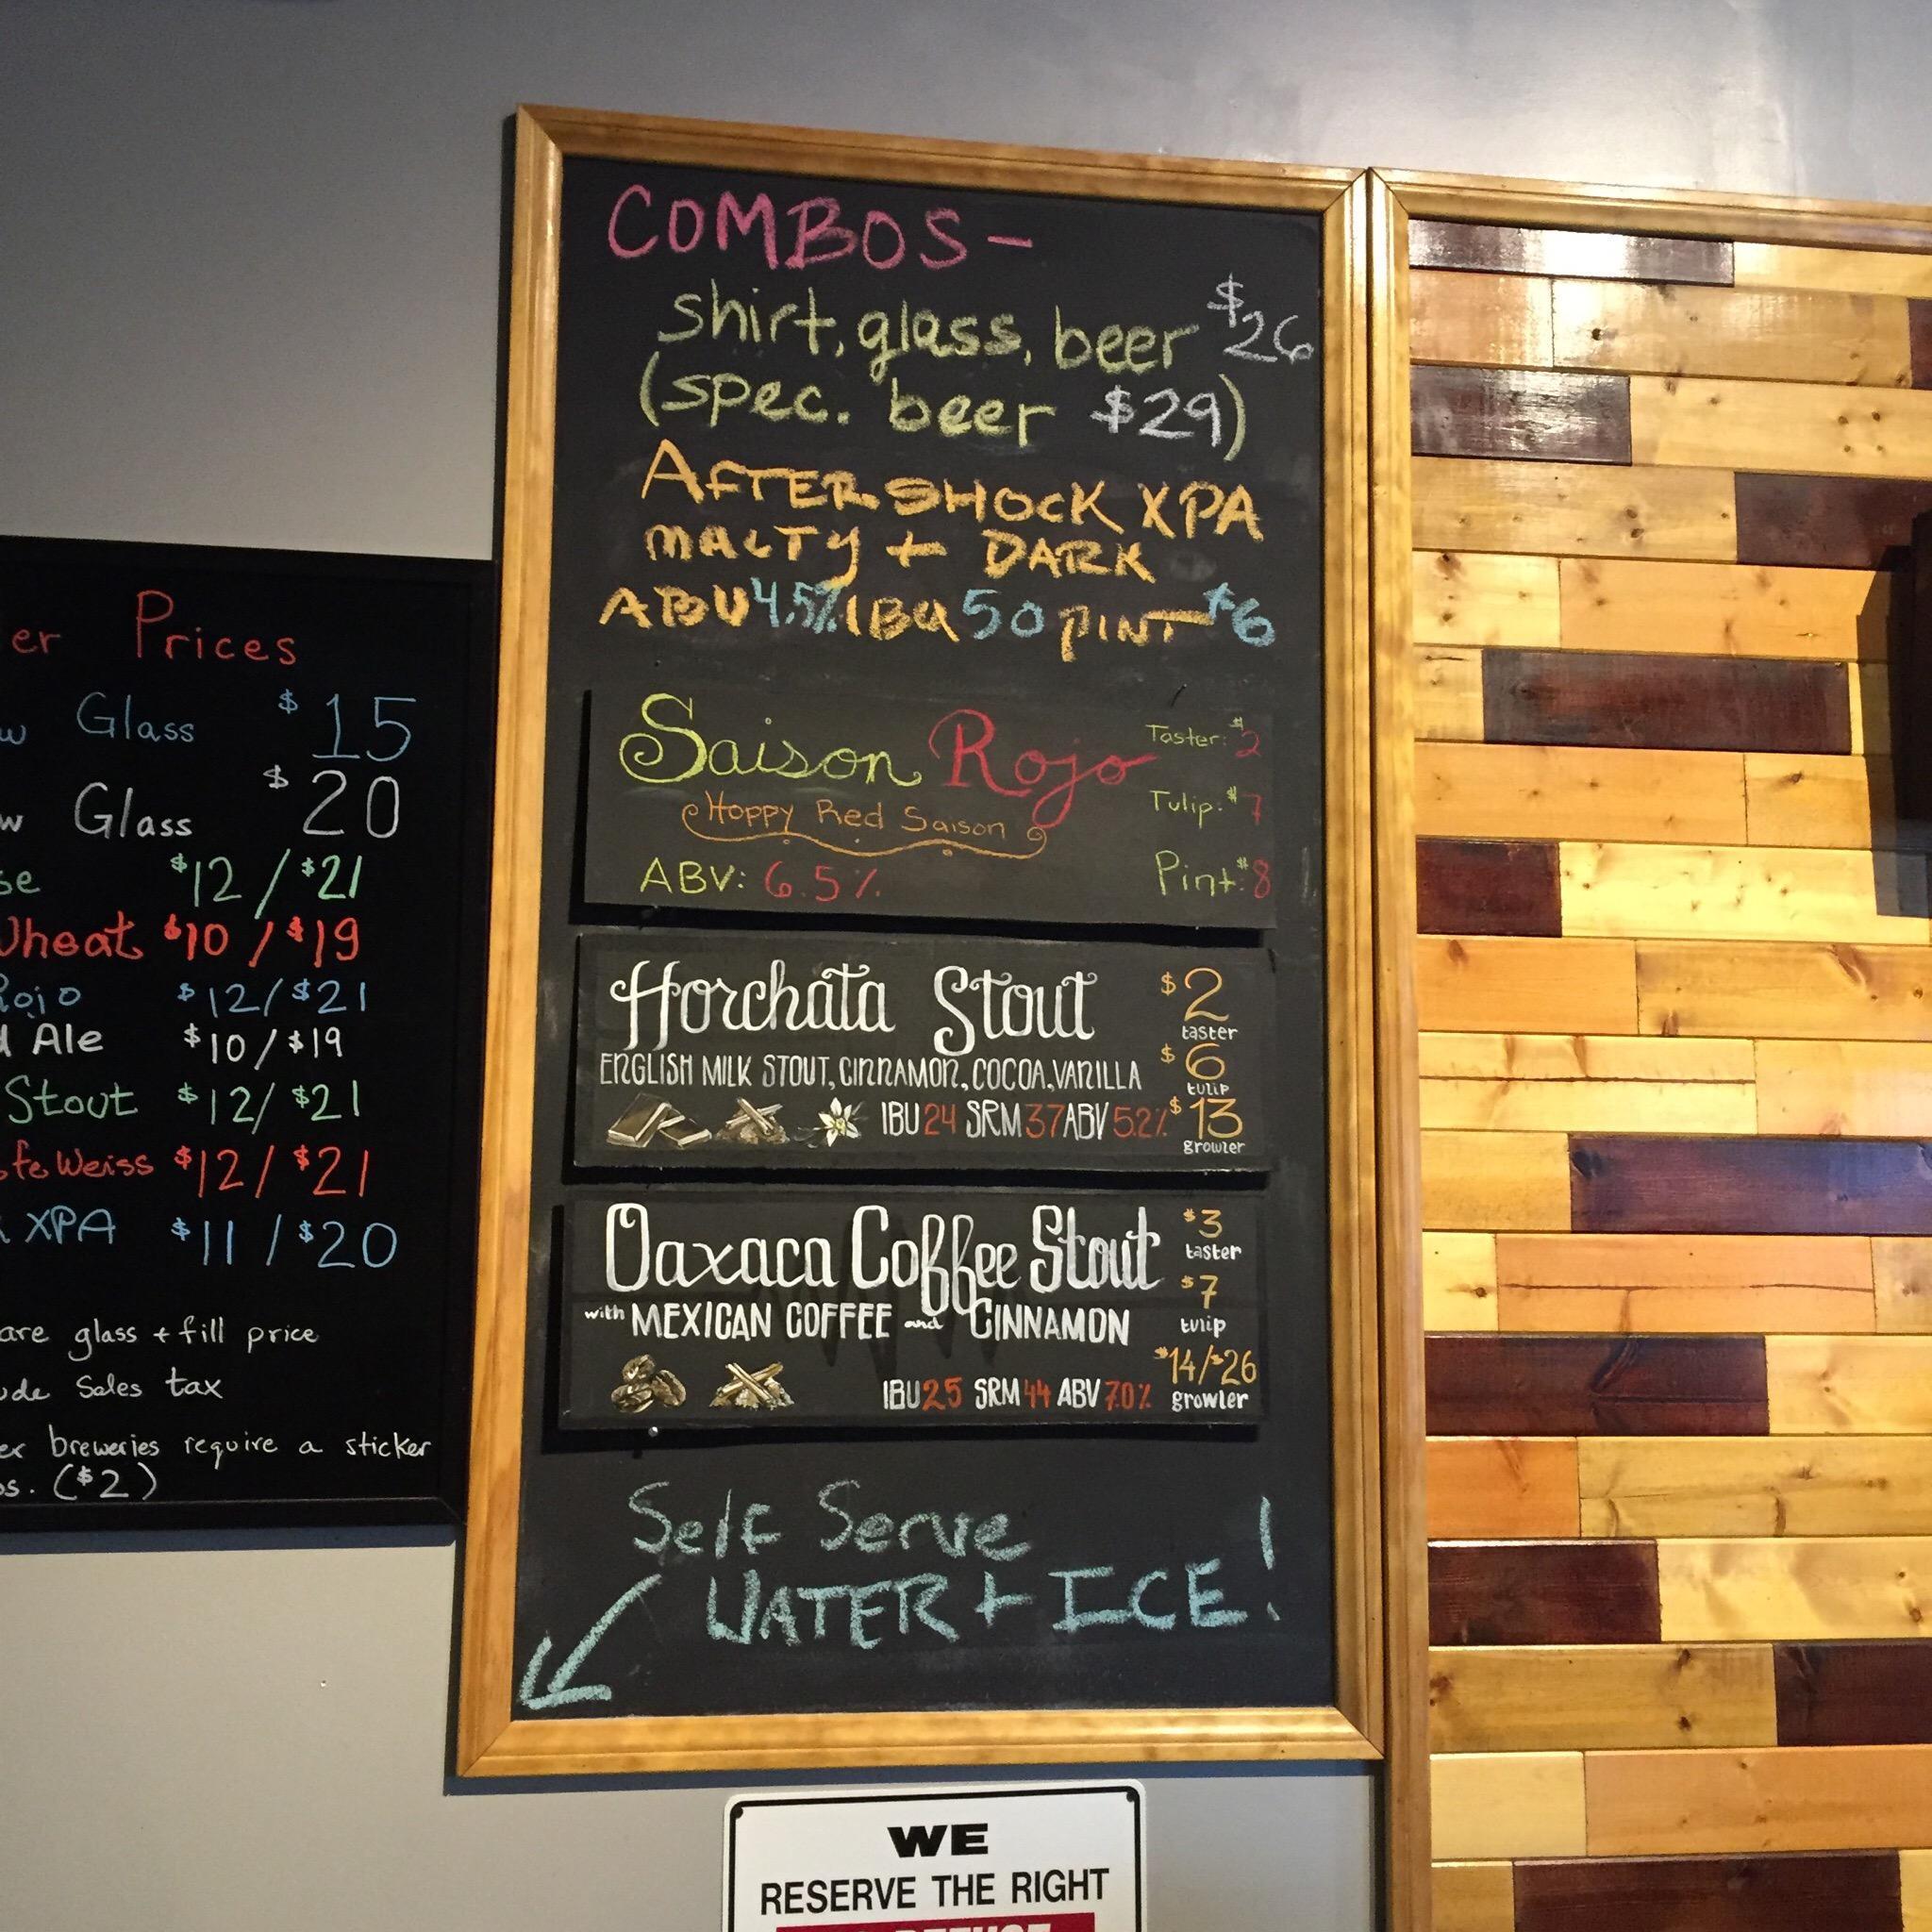 COMBOS-
shirt, glass, beer $26
(spec. beer $29)
AFTERSHOCK XPA
MALTY + DARK
ABU 4.5% IBU 50 PINT $6
Saison Rojo
Hoppy Red Saison
ABV: 6.5%
Taster: $2
Tulip: $7
Pint: $8
Horchata Stout
ENGLISH MILK STOUT, CINNAMON, COCOA, VANILLA
IBU 24 SRM 37 ABV 5.2%
$2
taster
$6
tulip
$13
growler
Oaxaca Coffee Stout
with MEXICAN COFFEE and CINNAMON
IBU 25 SRM 44 ABV 7.0%
$3
taster
$7
tulip
$14/$26
growler
Self Serve
WATER + ICE!
er Prices
w Glass $15
w Glass $20
se $12/$21
Wheat $10/$19
Rojo $12/$21
d Ale $10/$19
Stout $12/$21
feWeiss $12/$21
XPA $11/$20
are glass + fill price
ude Sales tax
er breweries require a sticker
os. ($2)
WE
RESERVE THE RIGHT